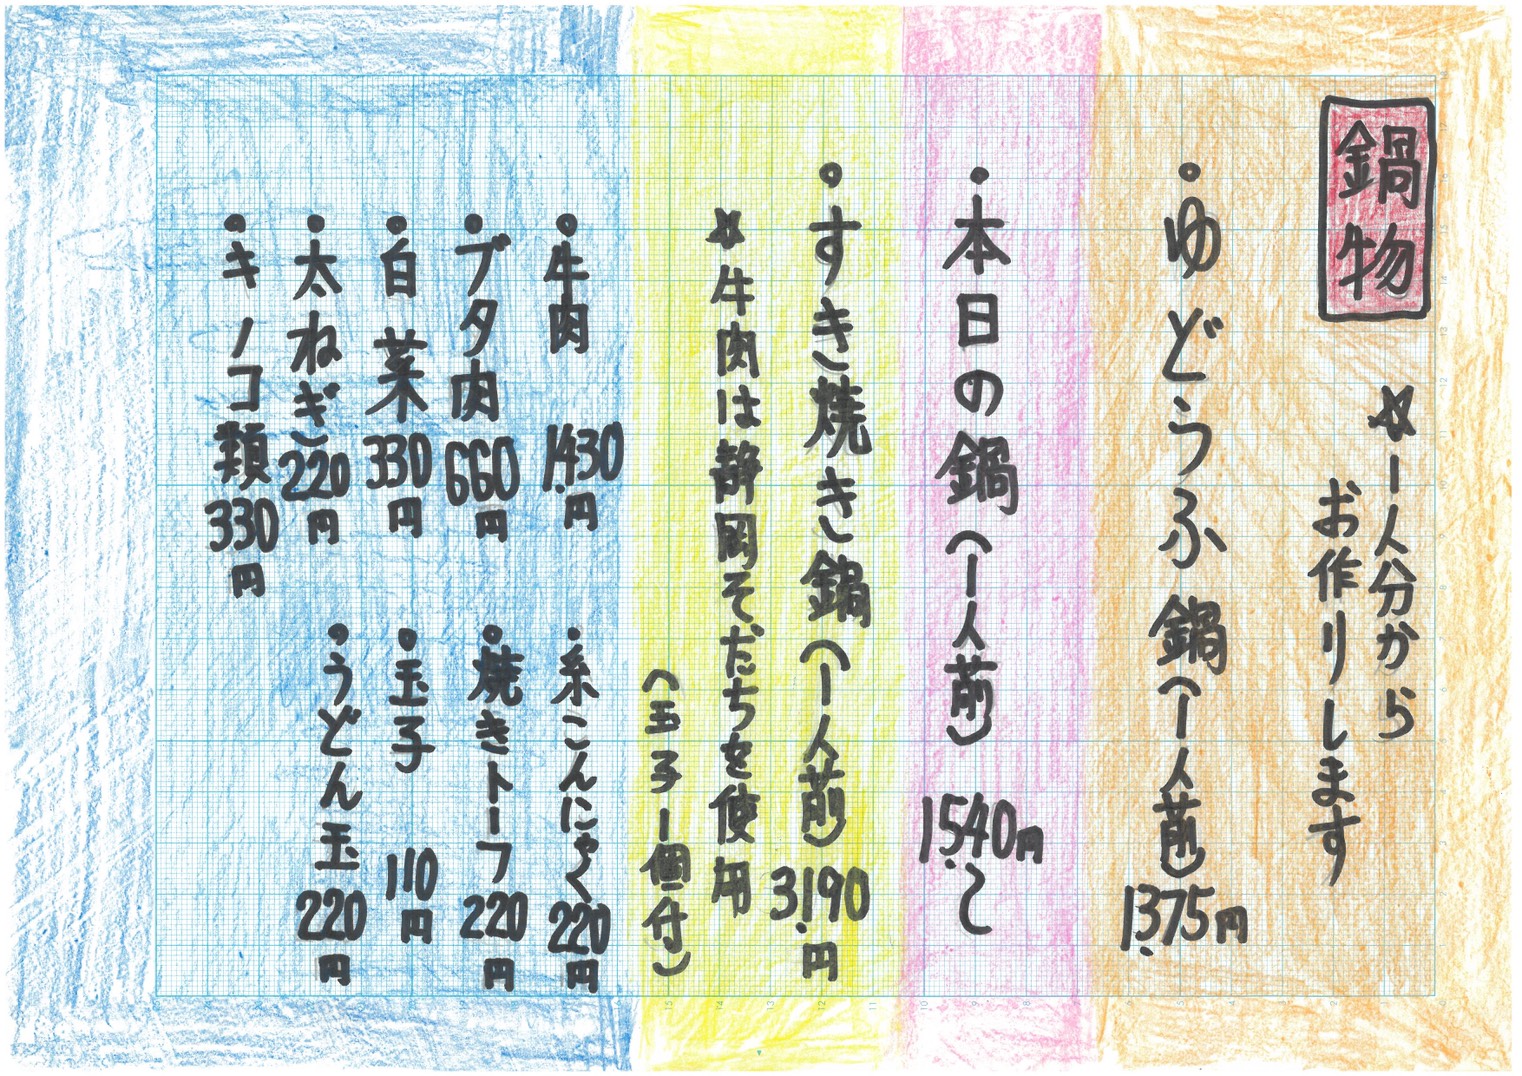 鍋物
☆一人分から
お作りします
・ゆどうふ鍋(一人前)1,375円
・本日の鍋(一人前) 1,540円〜
・すき焼き鍋(一人前)3,190円
☆牛肉は静岡そだちを使用
(玉子一個付)
・牛肉 1,430円
・ブタ肉 660円
・白菜 330円
・太ねぎ 220円
・キノコ類 330円
・糸こんにゃく 220円
・焼きトーフ 220円
・玉子 110円
・うどん玉 220円